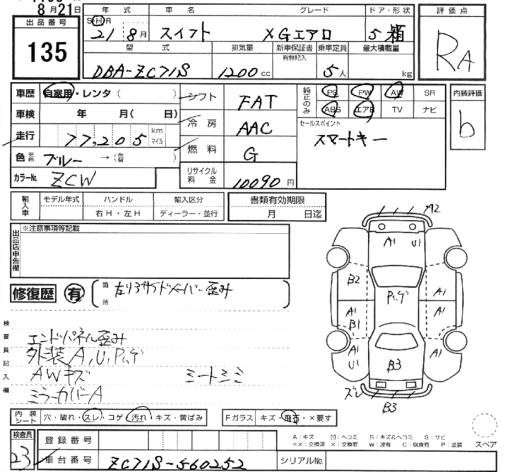 8月21日
出品番号
135
年式 車名 グレード ドア・形状
S H R
21 8月 スイフト XGエアロ 5 箱
型式 排気量 新車保証書 乗車定員 最大積載量
有無記入
DBA-ZC71S 1200cc 5人 kg
評価点
RA
車歴 自家用・レンタ( )
車検 年 月( 日)
走行 77,205 km マイル
色 ブルー → (替 )
カラーNo. ZCW
シフト FAT
冷房 AAC
燃料 G
リサイクル料金 10090円
純正のみ
PS PW AW SR
ABS エアB TV ナビ
セールスポイント
スマートキー
内装評価
b
輸入車 モデル年式 ハンドル 輸入区分
右H・左H ディーラー・並行
書類有効期限
月 日迄
出品店申告欄
※注意事項等記載
修復歴 有
箇所
左リヤサイドメンバー歪み
検査員記入欄
エンドパネル歪み
外装A,U,P,ゲ
AWキズ
ミラーカバーA
シートシミ
A2
A1 U1
B2 P,ゲ A1
A1
B1 A1
A1 U1
B3
ズレ B3
内装シート 穴・破れ・スレ・コゲ 汚れ・キズ・黄ばみ
Fガラス キズ・
・×要す
A:キズ U:ヘコミ B:キズ&ヘコミ S:サビ
××:交換済 ×:交換要 W:波有 C:腐食有 P:塗装
スペア
検査員
23
登録番号
車台番号 ZC71S-560252
シリアルNo.